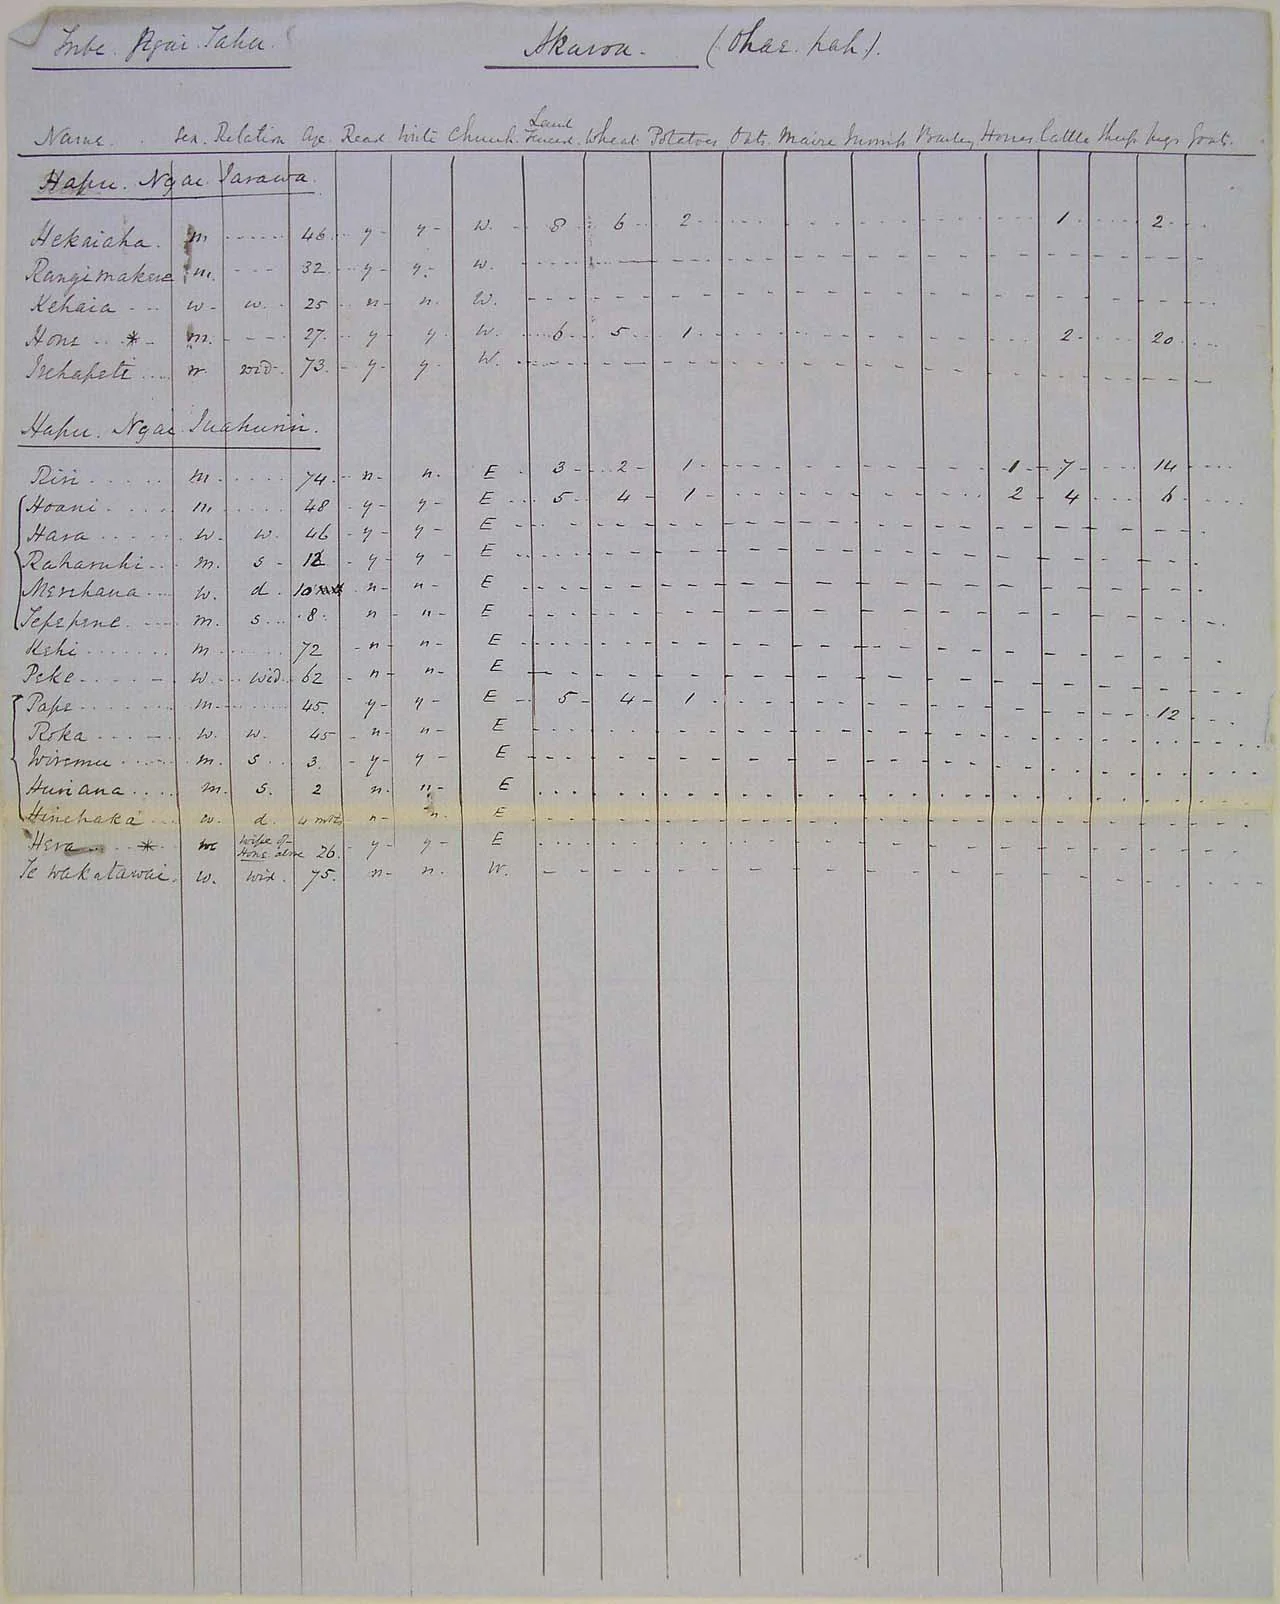 Tribe. Ngai. Tahu. Akaroa. (Ohae. pah).
Name. Sex. Relation Age. Read Write Church. Land Fenced. Wheat Potatoes Oats. Maize Turnips Barley Horses Cattle Sheep Pigs Goats.
Hapu. Ngai Tarawa.
Hekaiaha. m. 46. y y W. 8 6 2 1 2
Rangimakere m. 32. y y. W.
Kehaia w w. 25 n n. W.
Hone * m. 27. y y W. 6 5 1 2 20
Irehapeti w. wid. 73. y y W.
Hapu. Ngai. Tuahuriri.
Riri m 74 n n. E 3 2 1 1 7 14
Hoani m 48 y y E 5 4 1 2 4 6
Hara w. w. 46 y y E
Raharuhi m. s 12 y y E
Merehana w. d. 10 n n E
Tepepene m. s. 8. n n E
Kehi m 72 n n E
Peke w. wid. 62 n n E
Pape m 45. y y E 5 4 1 12
Roka w. w. 45 n n E
Wiremu m. s. 3. y y E
Huriana m. s. 2 n n E
Hinehaka w. d. 4 mths n n. E
Hera * w wife of Hone above 26. y y E
Te Wakatawai. w. wid. 75. n n. W.